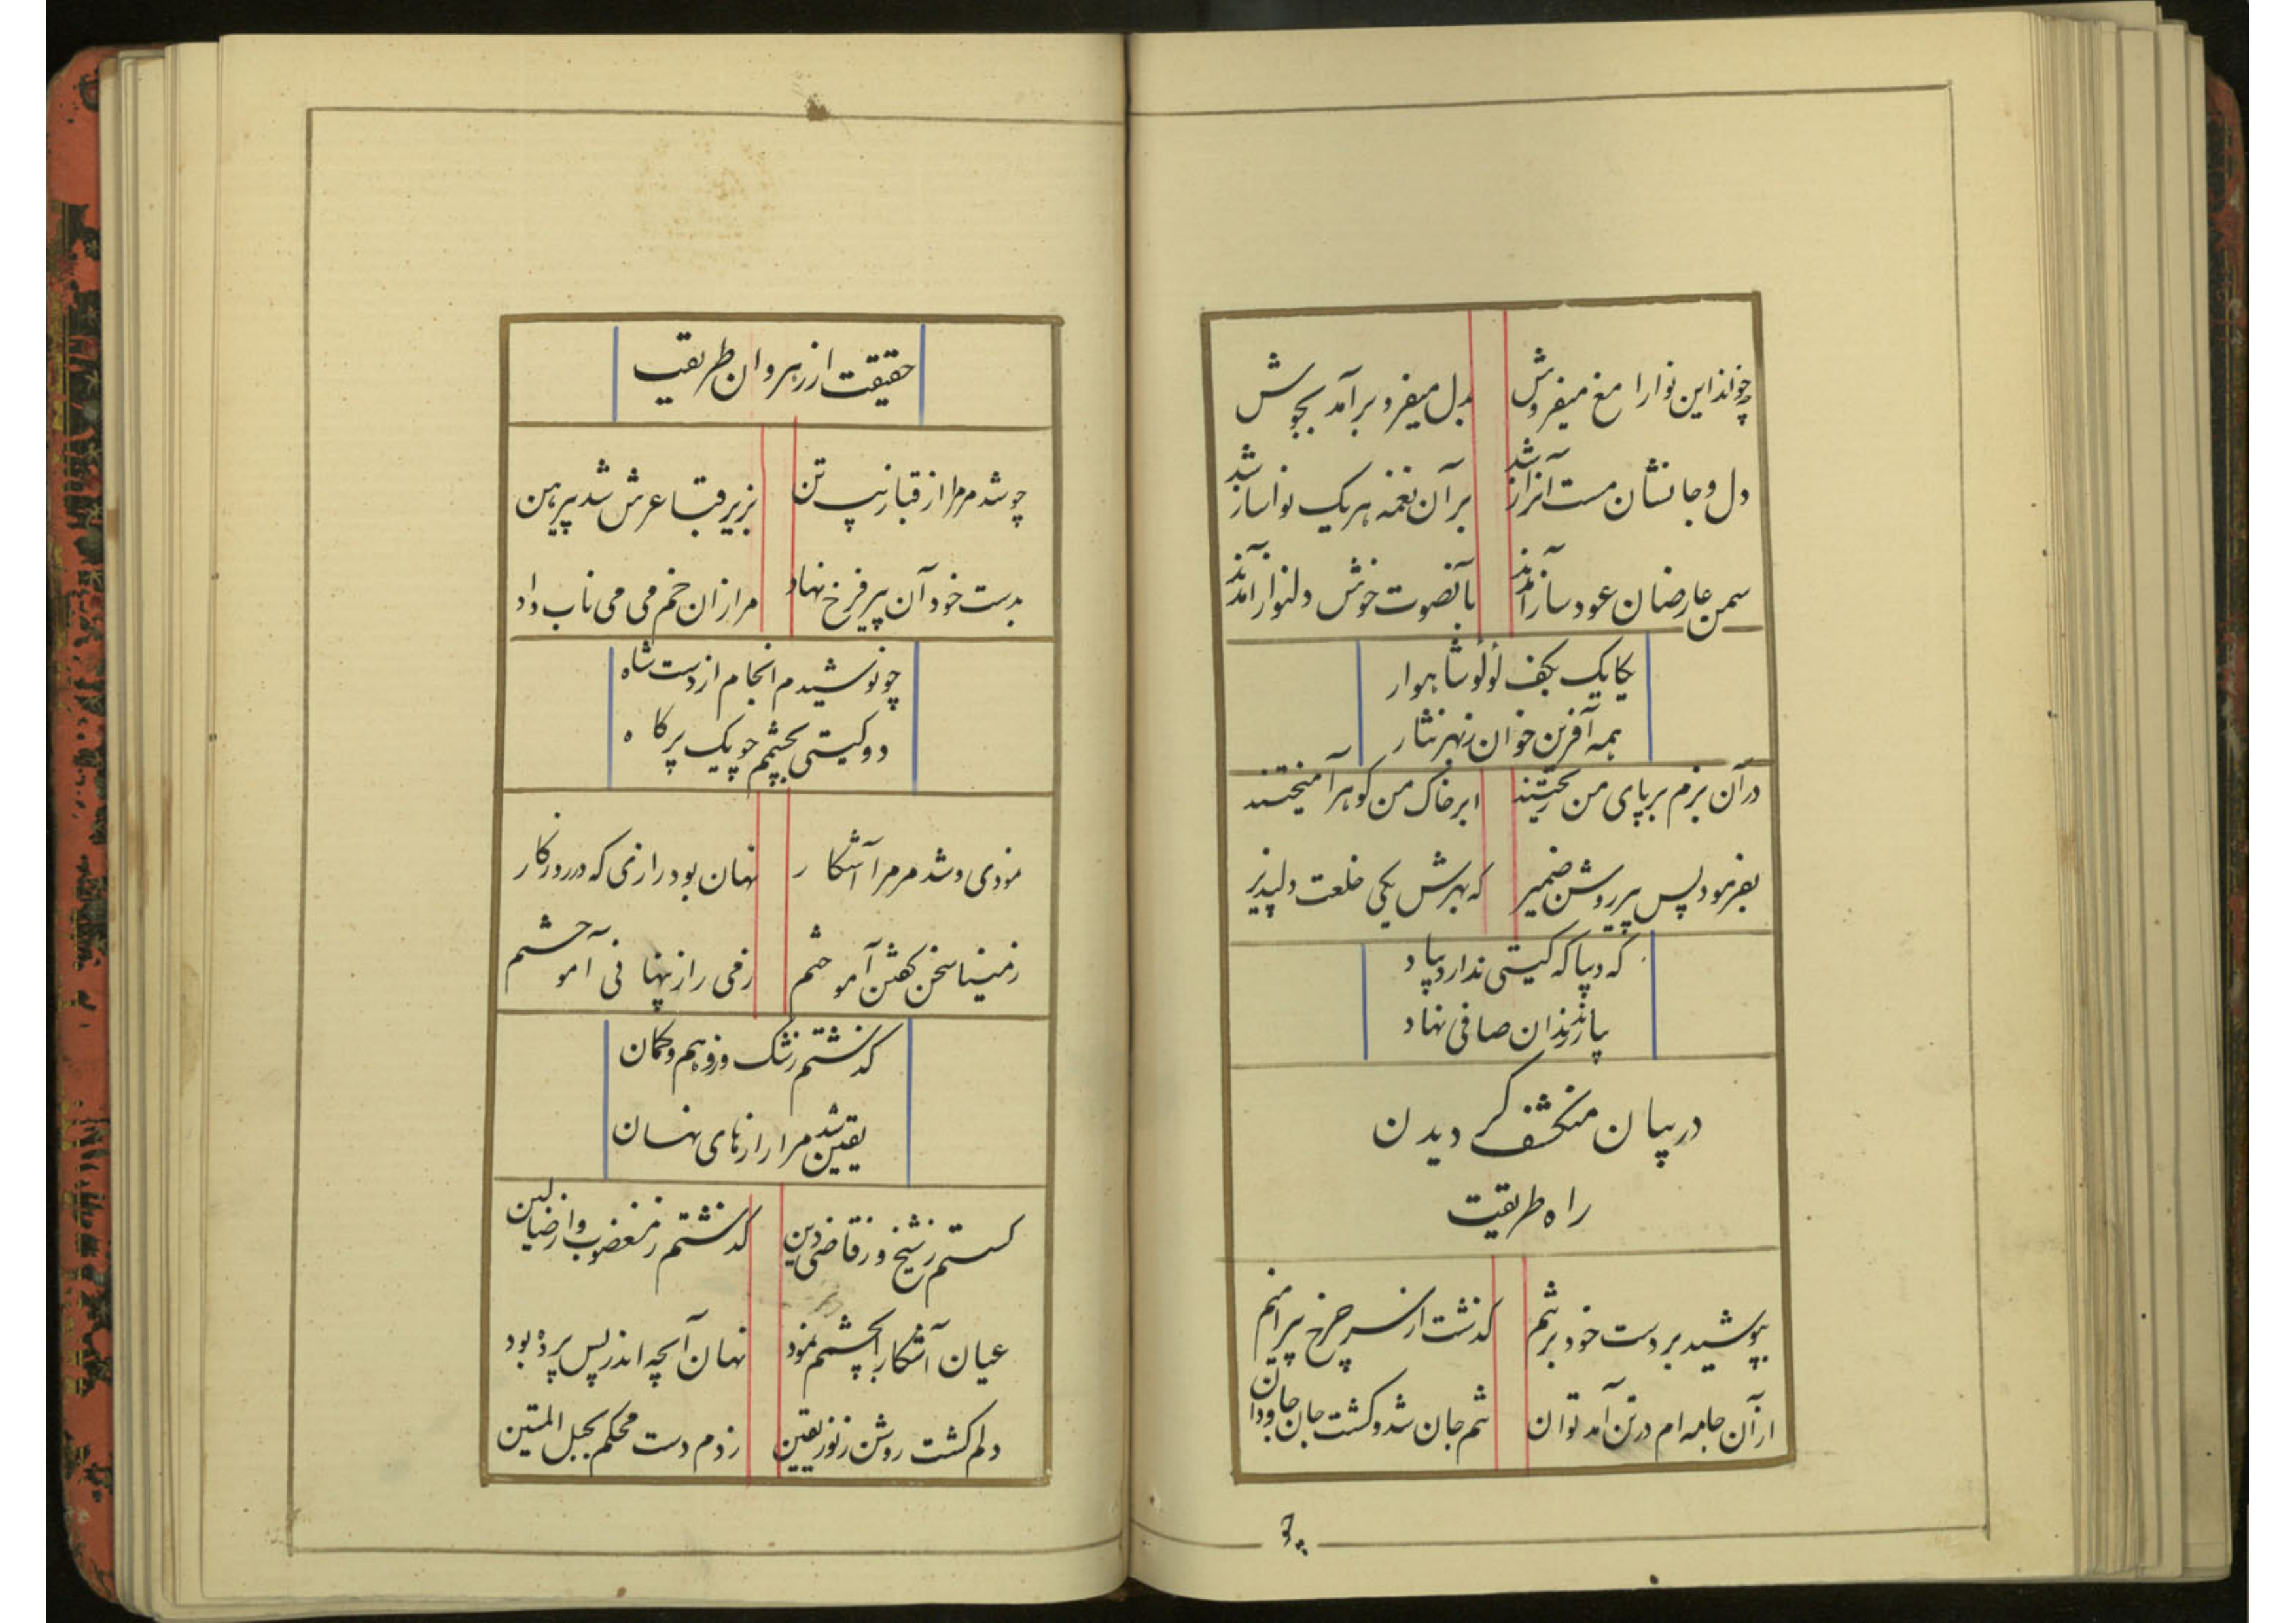 چو خواند این نوا را مغ میفروش
بدل میفرو برآمد بجوش
دل و جانشان مست آنراز شد
بر آن نغمه هر یک نواساز شد
سمن عارضان عود ساز آمدند
بآنصوت خوش دلنواز آمدند
یکایک بکف لؤلؤ شاهوار
همه آفرین خوان ز بهر نثار
در آن بزم بر پای من ریختند
ابر خاک من گوهر آمیختند
بفرمود پس پیر روشن ضمیر
که بهرش یکی خلعت دلپذیر
که دیبا که گیتی ندارد بیاد
بیارند زندان صافی نهاد
در بیان منکشف گردیدن
راه طریقت
بپوشید بر دست خود بر تنم
گذشت از سر چرخ پیراهنم
از آن جامه ام در تن آمد توان
تنم جان شد و گشت جان جاودان
چو
حقیقت از رهروان طریق
چو شد مر مرا از قبا زیب تن
بزیر قبا عرش شد پیرهن
بدست خود آن پیر فرخ نهاد
مرا زان خم می می ناب داد
چو نوشیدم انجام از دست شاه
دو گیتی بچشمم چو یک پر کاه
نمودی و شد مر مرا آشکار
نهان بود رازی که در روزگار
ز مینا سخن گفتن آموختم
ز می راز پنهانی آموختم
گذشتم ز شک وز وهم و گمان
یقین شد مرا رازهای نهان
گسستم ز شیخ و ز قاضی دین
گذشتم ز مغضوب و از ضالین
عیان آشکارا بچشمم نمود
نهان آنچه اندر پس پرده بود
دلم گشت روشن ز نور یقین
زدم دست محکم بحبل المتین